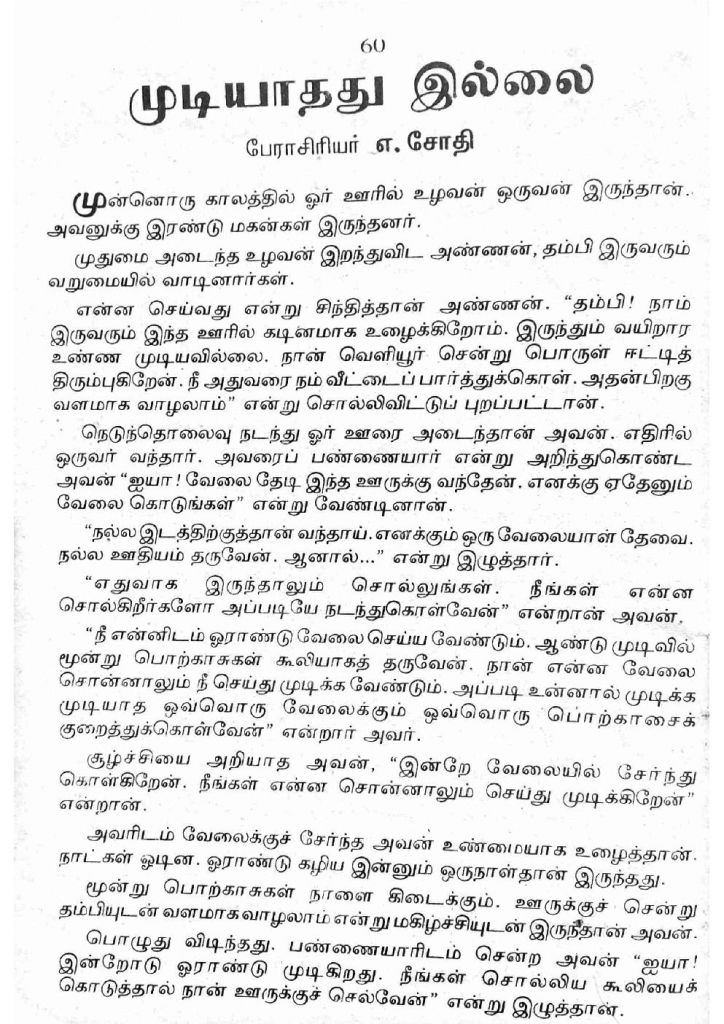 60
முடியாதது இல்லை
பேராசிரியர் எ. சோதி
முன்னொரு காலத்தில் ஓர் ஊரில் உழவன் ஒருவன் இருந்தான்.
அவனுக்கு இரண்டு மகன்கள் இருந்தனர்.
முதுமை அடைந்த உழவன் இறந்துவிட அண்ணன், தம்பி இருவரும்
வறுமையில் வாடினார்கள்.
என்ன செய்வது என்று சிந்தித்தான் அண்ணன். “தம்பி! நாம்
இருவரும் இந்த ஊரில் கடினமாக உழைக்கிறோம். இருந்தும் வயிறார
உண்ண முடியவில்லை. நான் வெளியூர் சென்று பொருள் ஈட்டித்
திரும்புகிறேன். நீ அதுவரை நம் வீட்டைப் பார்த்துக்கொள். அதன்பிறகு
வளமாக வாழலாம்” என்று சொல்லிவிட்டுப் புறப்பட்டான்.
நெடுந்தொலைவு நடந்து ஓர் ஊரை அடைந்தான் அவன். எதிரில்
ஒருவர் வந்தார். அவரைப் பண்ணையார் என்று அறிந்துகொண்ட
அவன் “ஐயா! வேலை தேடி இந்த ஊருக்கு வந்தேன். எனக்கு ஏதேனும்
வேலை கொடுங்கள்” என்று வேண்டினான்.
“நல்ல இடத்திற்குத்தான் வந்தாய். எனக்கும் ஒரு வேலையாள் தேவை.
நல்ல ஊதியம் தருவேன். ஆனால்...” என்று இழுத்தார்.
“எதுவாக இருந்தாலும் சொல்லுங்கள். நீங்கள் என்ன
சொல்கிறீர்களோ அப்படியே நடந்துகொள்வேன்” என்றான் அவன்.
“நீ என்னிடம் ஓராண்டு வேலை செய்ய வேண்டும். ஆண்டு முடிவில்
மூன்று பொற்காசுகள் கூலியாகத் தருவேன். நான் என்ன வேலை
சொன்னாலும் நீ செய்து முடிக்க வேண்டும். அப்படி உன்னால் முடிக்க
முடியாத ஒவ்வொரு வேலைக்கும் ஒவ்வொரு பொற்காசைக்
குறைத்துக்கொள்வேன்” என்றார் அவர்.
சூழ்ச்சியை அறியாத அவன், “இன்றே வேலையில் சேர்ந்து
கொள்கிறேன். நீங்கள் என்ன சொன்னாலும் செய்து முடிக்கிறேன்”
என்றான்.
அவரிடம் வேலைக்குச் சேர்ந்த அவன் உண்மையாக உழைத்தான்.
நாட்கள் ஓடின. ஓராண்டு கழிய இன்னும் ஒருநாள்தான் இருந்தது.
மூன்று பொற்காசுகள் நாளை கிடைக்கும். ஊருக்குச் சென்று
தம்பியுடன் வளமாக வாழலாம் என்று மகிழ்ச்சியுடன் இருந்தான் அவன்.
பொழுது விடிந்தது. பண்ணையாரிடம் சென்ற அவன் “ஐயா!
இன்றோடு ஓராண்டு முடிகிறது. நீங்கள் சொல்லிய கூலியைக்
கொடுத்தால் நான் ஊருக்குச் செல்வேன்” என்று இழுத்தான்.